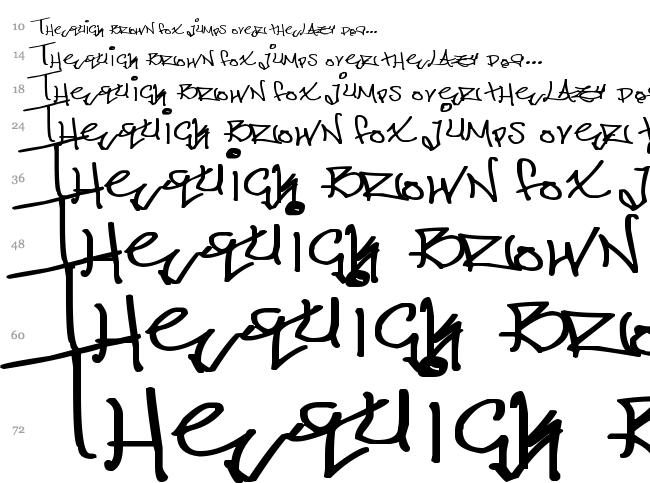 10 The quick brown fox jumps over the lazy dog...
14 The quick brown fox jumps over the lazy dog...
18 The quick brown fox jumps over the lazy dog
24 The quick brown fox jumps over t
36 The quick brown fox j
48 The quick brown
60 The quick bro
72 The quick b